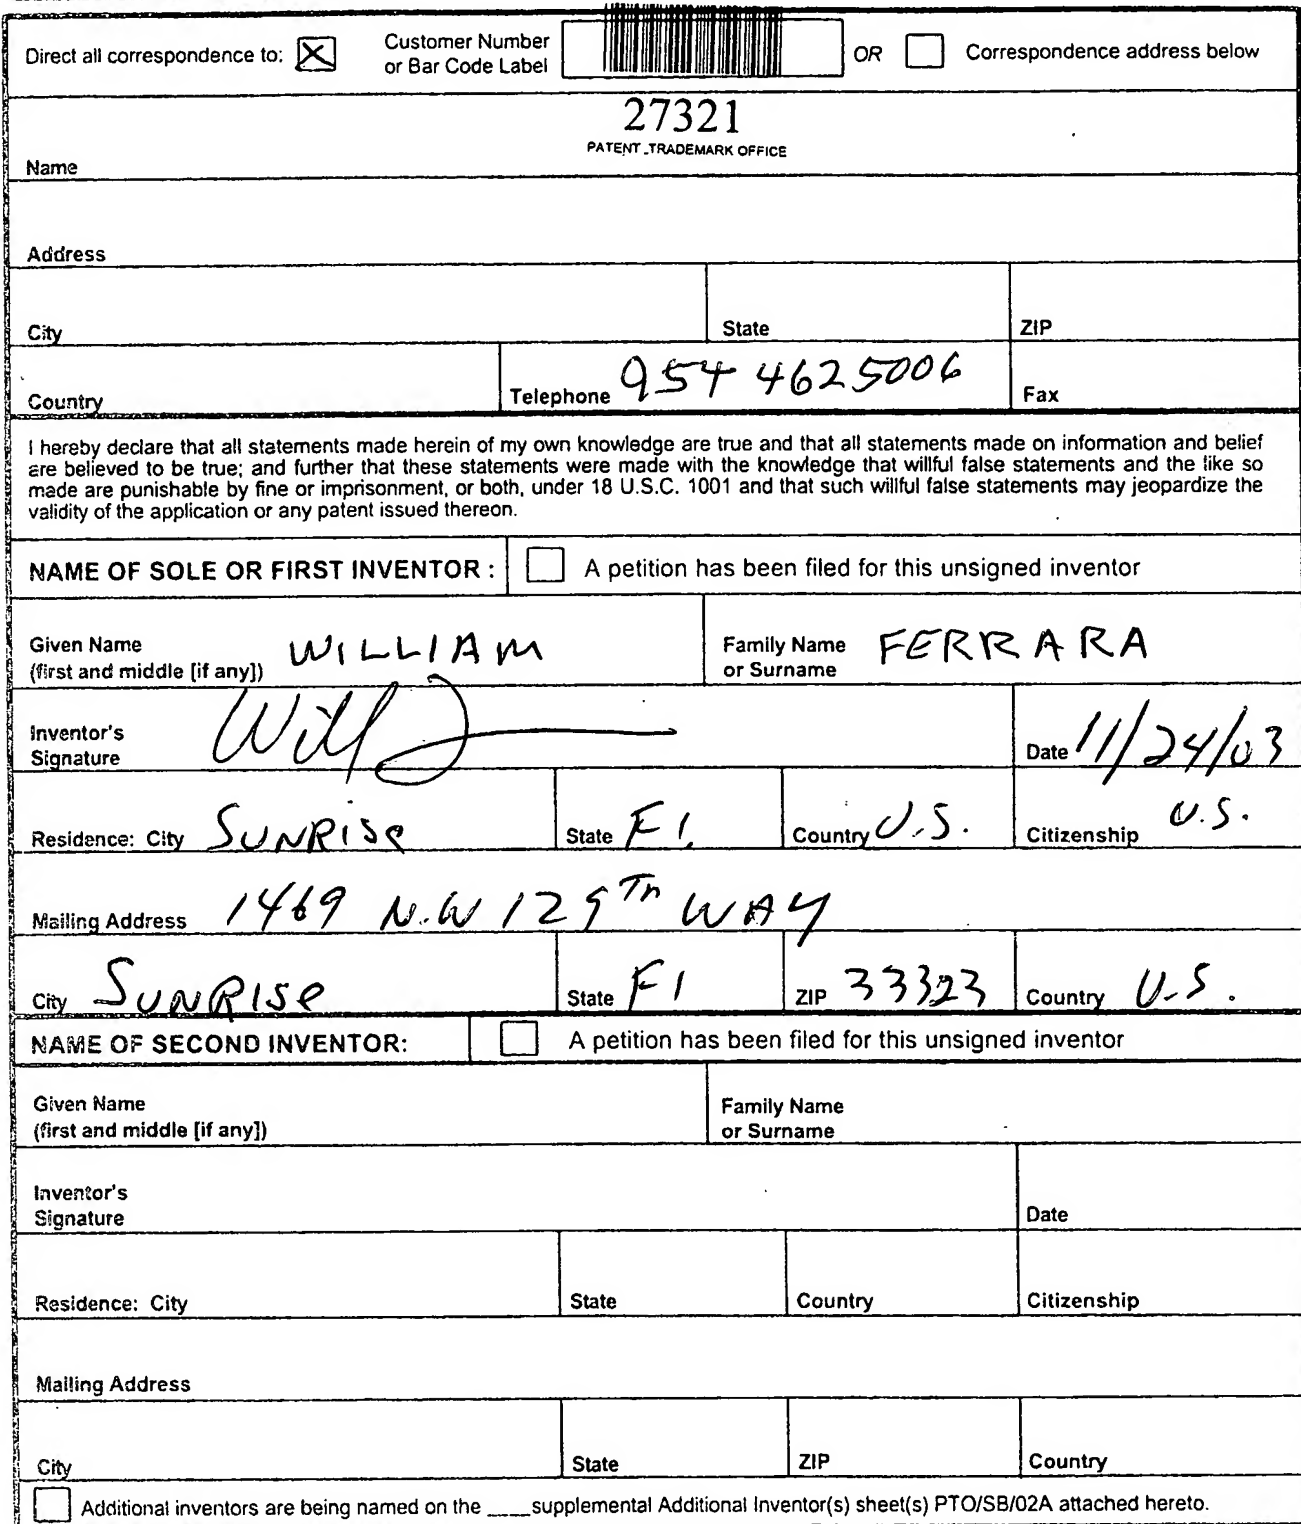 Direct all correspondence to: Customer Number or Bar Code Label OR Correspondence address below
27321
PATENT TRADEMARK OFFICE
Name
Address
City State ZIP
Country Telephone 954 4625006 Fax
I hereby declare that all statements made herein of my own knowledge are true and that all statements made on information and belief
are believed to be true; and further that these statements were made with the knowledge that willful false statements and the like so
made are punishable by fine or imprisonment, or both, under 18 U.S.C. 1001 and that such willful false statements may jeopardize the
validity of the application or any patent issued thereon.
NAME OF SOLE OR FIRST INVENTOR : A petition has been filed for this unsigned inventor
Given Name (first and middle [if any]) WILLIAM Family Name or Surname FERRARA
Inventor's Signature Date 11/24/03
Residence: City SUNRISe State Fl. Country U.S. Citizenship U.S.
Mailing Address 1469 N.W 129Th WAY
City SUNRISe State Fl ZIP 33323 Country U.S.
NAME OF SECOND INVENTOR: A petition has been filed for this unsigned inventor
Given Name (first and middle [if any]) Family Name or Surname
Inventor's Signature Date
Residence: City State Country Citizenship
Mailing Address
City State ZIP Country
Additional inventors are being named on the ____supplemental Additional Inventor(s) sheet(s) PTO/SB/02A attached hereto.